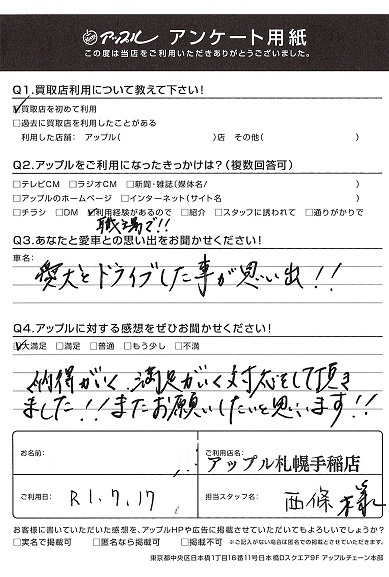 アップル アンケート用紙
この度は当店をご利用いただきありがとうございました。
Q1.買取店利用について教えて下さい!
☑買取店を初めて利用
□過去に買取店を利用したことがある
利用した店舗: アップル( )店 その他( )
Q2.アップルをご利用になったきっかけは?(複数回答可)
□テレビCM □ラジオCM □新聞・雑誌(媒体名/ )
□アップルのホームページ □インターネット(サイト名 )
□チラシ □DM ☑利用経験があるので □紹介 □スタッフに誘われて □通りがかりで
職場で!!
Q3.あなたと愛車との思い出をお聞かせください!
車名:
愛犬とドライブした事が思い出!!
Q4.アップルに対する感想をぜひお聞かせください!
☑大満足 □満足 □普通 □もう少し □不満
納得がいく、満足がいく対応をして頂き
ました!!またお願いしたいと思います!!
お名前:
ご利用店名:
アップル札幌手稲店
ご利用日: R1.7.17
担当スタッフ名: 西條 様
お客様に書いていただいた感想を、アップルHPや広告に掲載させていただいてもよろしいでしょうか?
□実名で掲載可 □匿名なら掲載可 □掲載不可 ※ご記入がない場合は匿名での掲載とさせていただきます。
東京都中央区日本橋1丁目16番11号日本橋Dスクエア9F アップルチェーン本部